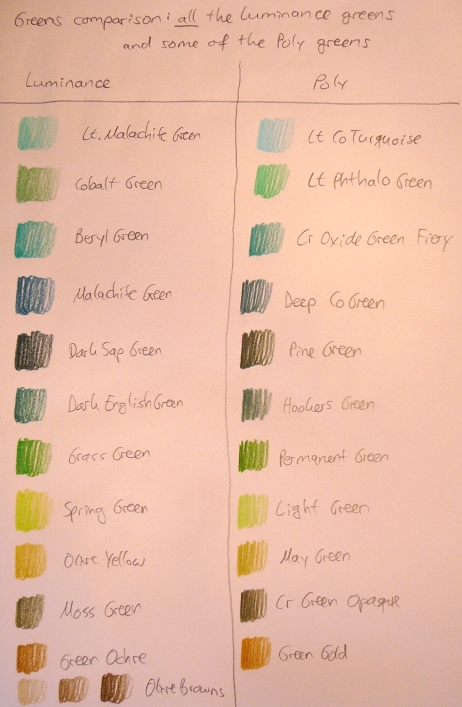 Greens comparison: all the Luminance greens
and some of the Poly greens
Luminance Poly
Lt. Malachite Green Lt Co Turquoise
Cobalt Green Lt Phthalo Green
Beryl Green Cr Oxide Green Fiery
Malachite Green Deep Co Green
Dark Sap Green Pine Green
Dark English Green Hookers Green
Grass Green Permanent Green
Spring Green Light Green
Olive Yellow May Green
Moss Green Cr Green Opaque
Green Ochre Green Gold
Olive Browns